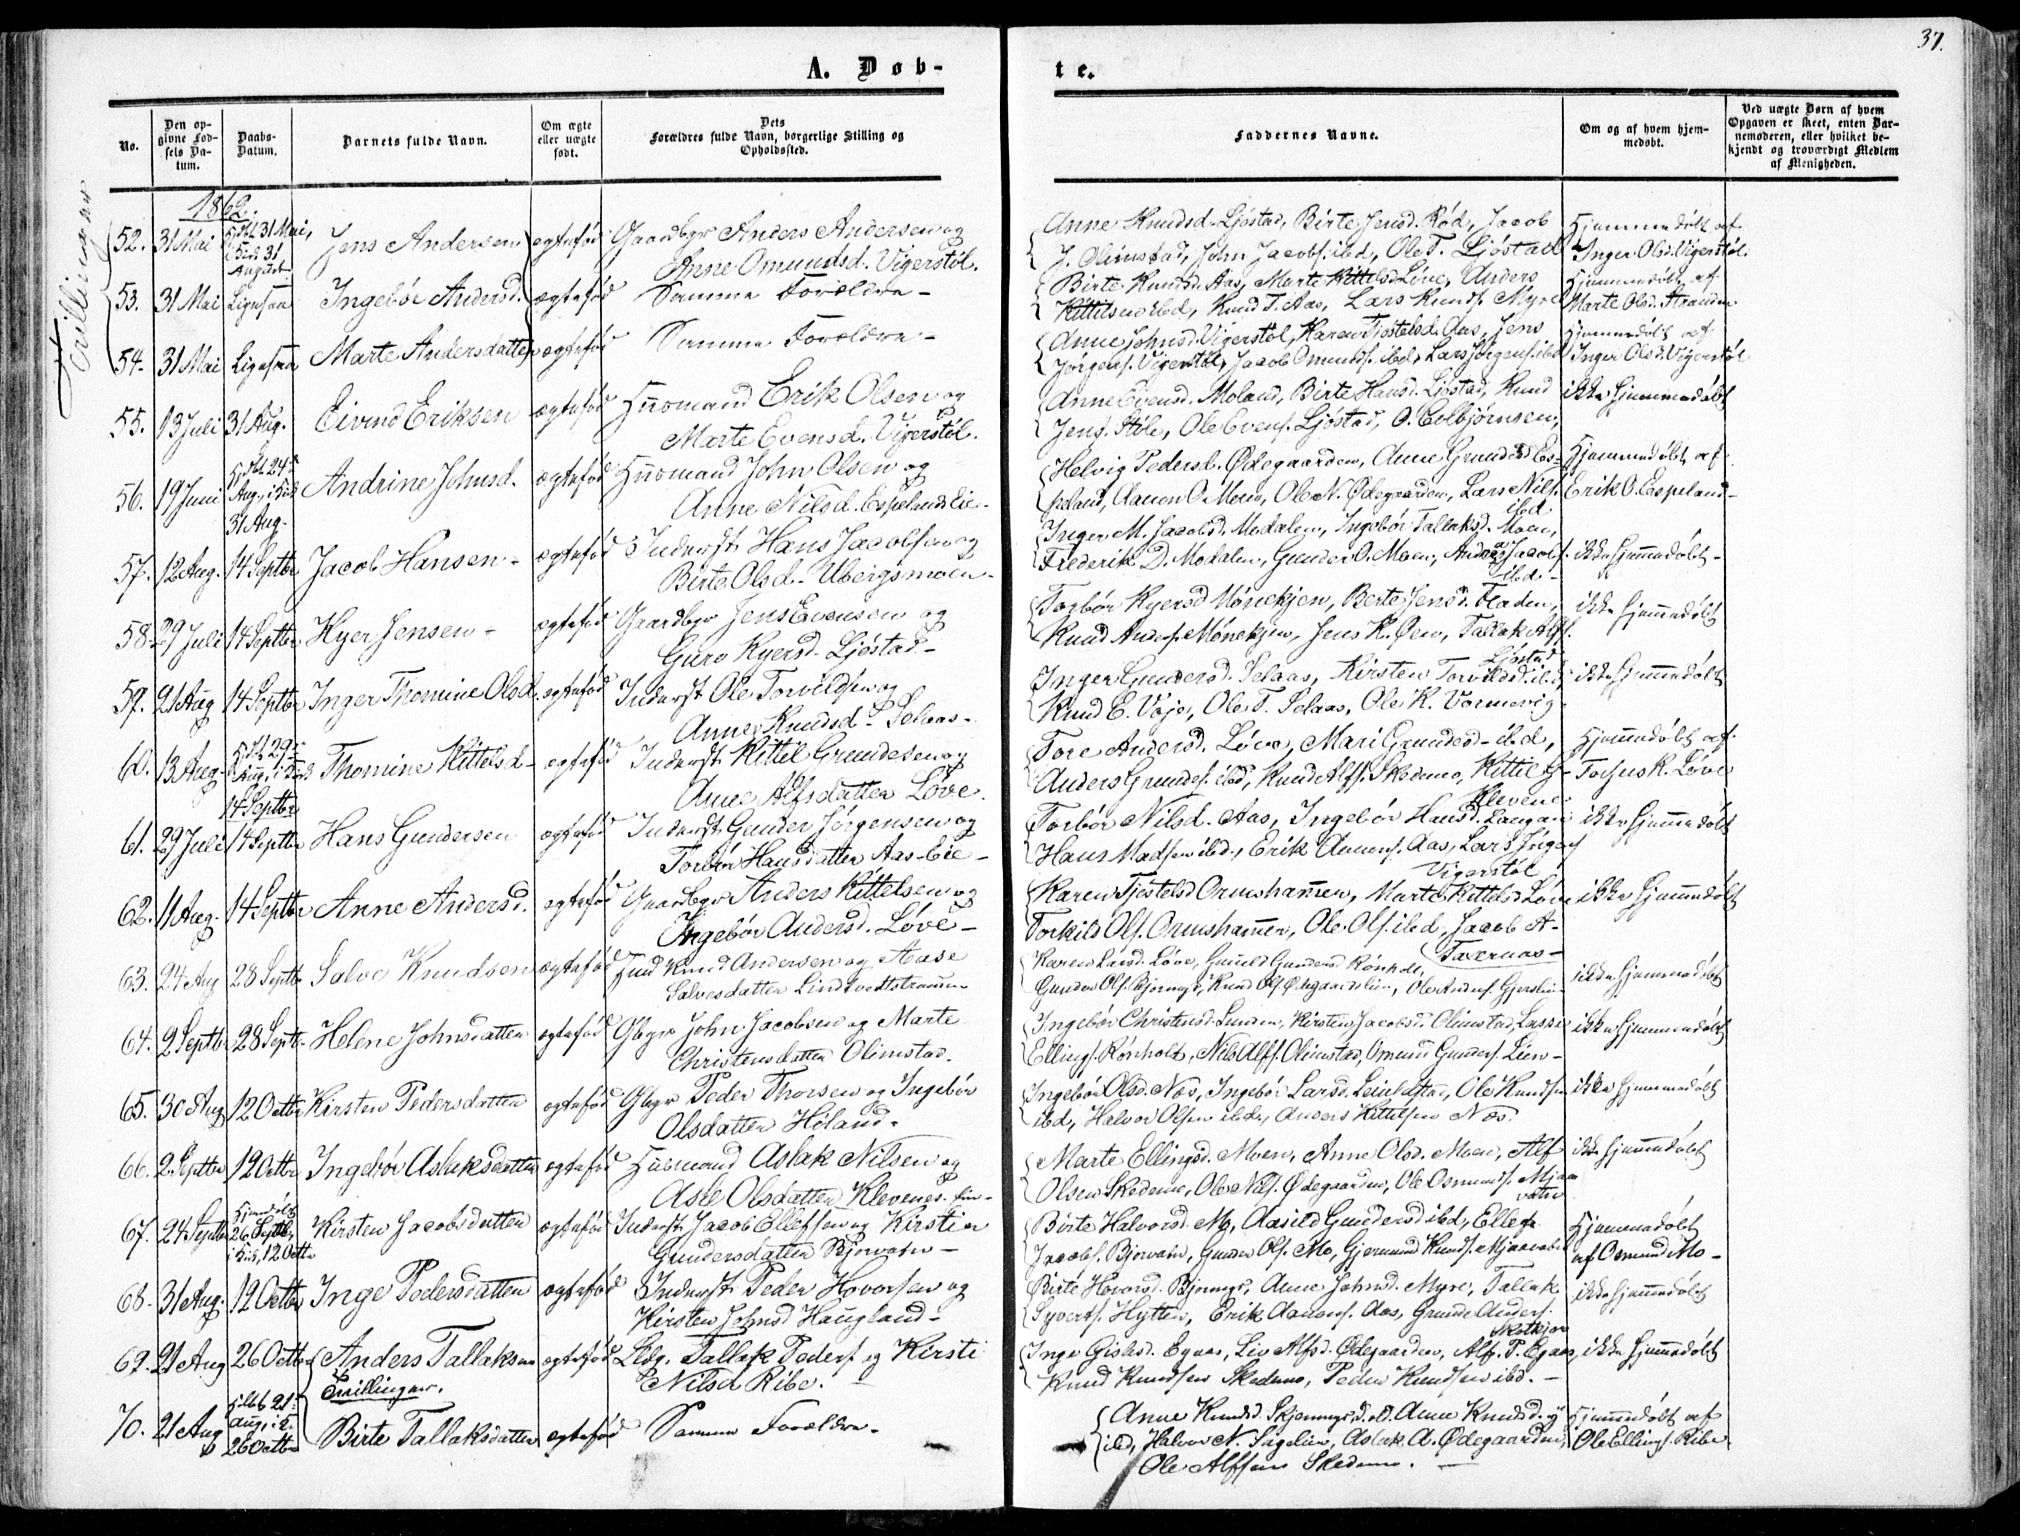 37.
A. Døb-
te.
No.
Den op-
givne Fød-
sels Da-
tum.
Daabs-
Datum.
Barnets fulde Navn.
Om ægte
eller uægte
født.
Dets
Forældres fulde Navn, borgerlige Stilling og
Opholdssted.
Faddernes Navne.
Om og af hvem hjem-
medøbt.
Ved uægte Børn af hvem
Opgaven er skeet, enten Bar-
nemoderen, eller hvilket be-
kjendt og troværdigt Medlem
af Menigheden.
Trillinger
1862.
52. 31 Mai 31 Mai, Jens Andersen ægtefød Gaardbgr Anders Andersen og
31 August Anne Omundsd. Vigerstøl.
Anne Knudsd. Ljøstad, Birte Jensd. Rød, Jacob
J. Olimstad, John Jacobs. ibd, Ole T. Ljøstad
Hjemmedøbt af
Inger Olsd. Vigerstøl.
53. 31 Mai Ligesaa Ingebør Andersd. ægtefød Samme Forældre -
Birte Knudsd. Aas, Marte Kittelsd. Line, Anders
Kittelsen ibd, Knud T. Aas, Lars Knuds. Myre
Hjemmedøbt af
Marte Olsd. Stranden
54. 31 Mai Ligesaa Marte Andersdatter ægtefød Samme Forældre -
Anne Johnsd. Vigerstøl, Karen Tjøstelsd. Aas, Jens
Jørgens. Vigerstøl, Jacob Omunds. ibd, Lars Jørgens. ibd
Hjemmedøbt af
Inger Olsd. Vigerstøl
55. 13 Juli 31 Aug. Eivind Eriksen ægtefød Huusmand Erik Olsen og
Marte Evensd. Vigerstøl.
Anne Evensd. Moland, Birte Hansd. Ljøstad, Knud
Jens. Støle, Ole Evens. Ljøstad, O. Colbjørnsen,
ikke hjemmedøbt
56. 19 Juni 24 Aug., 31 Aug. Andrine Johnsd. ægtefød Huusmand John Olsen og
Anne Nilsd. Espelands Eie -
Helvig Pedersd. Ødegaarden, Anne Gundersd. Es-
peland, Aanon O. Moen, Ole N. Ødegaarden, Lars Nils.
ibd
Hjemmedøbt af
Erik O. Espeland -
57. 12 Aug. 14 Septbr Jacob Hansen - ægtefød Inderst Hans Jacobsen og
Birte Olsd. Ubergsmoen -
Inger M. Jacobsd. Modalen, Ingebør Tallaksd. Moen,
Frederik D. Modalen, Gunder O. Moen, Anders Jacobs.
ibd -
ikke hjemmedøbt -
58. 29 Juli 14 Septbr Kyer Jensen - ægtefød Gaardbgr Jens Evensen og
Guro Kyersd. Ljøstad -
Torbør Kyersd Mønekjen, Berte Jensd. Fladen,
Knud Anders. Mønekjen, Jens K. Øen, Tallak Alfs.
Ljøstad
ikke hjemmedøbt
59. 21 Aug 14 Septbr Inger Thomine Olsd. ægtefød Inderst Ole Torvildsen og
Anne Knudsd. Selaas -
Inger Gundersd. Selaas, Kirsten Torvildsd. ibd,
Knud E. Voje, Ole T. Selaas, Ole K. Vormevig -
ikke hjemmedøbt
60. 13 Aug. 29 Aug., 14 Septbr Thomine Kittelsd - ægtefød Inderst Kittel Grundesen og
Anne Alfsdatter Løve.
Tore Andersd. Løve, Mari Grundesd. ibd,
Anders Grundes. ibd, Knud Alfs. Skedemo, Kittel G.
Klevene
Hjemmedøbt af
K. Løve
61. 29 Juli 14 Septbr Hans Gundersen ægtefød Inderst Gunder Jørgensen og
Torbør Hansdatter Aas-Eie -
Torbør Nilsd. Aas, Ingebør Hansd. Langaas
Hans Madsen ibd, Erik Aanens. Aas, Lars Jørgens
Vigerstøl
ikke hjemmedøbt
62. 11 Aug. 14 Septbr Anne Andersd. ægtefød Gaardbgr Anders Kittelsen og
Ingebør Andersd. Løve -
Karen Tjøstelsd Ormshammer, Marte Kittelsd Løve
Torkild Ols. Ormshammer, Ole Ols. ibd, Jacob A.
ikke hjemmedøbt
63. 24 Aug 28 Septbr Salve Knudsen ægtefød Knud Andersen og Aase
Salvesdatter Lindtvedtstranden
Karen Larsd. Løve, Gunild Gundersd Rønholt,
Gunder Ols. Bjorvatn, Knud Ols. Ødegaardslien, Ole Anders.
ikke hjemmedøbt
64. 2 Septbr 28 Septbr Helene Johnsdatter ægtefød Gbgr John Jacobsen og Marte
Christensdatter Olimstad.
Ingebør Christensd. Lunden, Kirsten Jacobsd. Olimstad, Lasse
Ellings. Rønholt, Nils Alfs. Olimstad, Omund Gunders. Lien -
ikke hjemmedøbt
65. 30 Aug 12 Octbr Kirsten Pedersdatter ægtefød Gbgr Peder Thorsen og Ingebør
Olsdatter Høland -
Ingebør Olsd. Næs, Ingebør Larsd. Ole Knudsen
ibd, Halvor Olsen ibd, Anders Kittelsen Næs.
ikke hjemmedøbt
66. 2 Septbr 12 Octbr Ingebør Aslaksdatter ægtefød Huusmand Aslak Nilsen og
Asle Olsdatter Klevenes Eie -
Marte Ellingsd. Moen, Anne Olsd. Moen, Alf
Olsen Skedemo, Ole Nils. Ødegaarden, Ole Osmunds. Mjaa
vatn
ikke hjemmedøbt
67. 24 Septbr Hjemdøbt 26 Septbr, 12 Octbr Kirsten Jacobsdatter ægtefød Inderst Jacob Ellefsen og Kirstin
Gundersdatter Bjorvatn -
Birte Halvorsd. Mo, Aasild Gundersd ibd, Ellef
Jacobs. Bjorvatn, Gunder Ols. Mo, Gjermund Knuds. Mjaavatn
Hjemmedøbt
af Osmund Mo -
68. 31 Aug. 12 Octbr Inge Pedersdatter ægtefød Inderst Peder Hovorsen og
Kirsten Johnsd Haugland -
Birte Hovorsd. Anne Johnsd. Myre, Tallak
Syverts. Hytten, Erik Aanens. Aas, Grunde Anders.
ikke hjemmedøbt
69. 21 Aug 26 Octbr Anders Tallaksen ægtefød Tallak Peders. og Kirsti
Tvillinger. Nilsd Ribe.
Inge Gislesd. Egaas, Liv Alfsd. Ødegaarden, Alf P. Egaas,
Knud Knudsen Skedemo, Peder Knudsen ibd. -
ikke hjemmedøbt
70. 21 Aug 21 Aug., 26 Octbr Birte Tallaksdatter ægtefød Samme Forældre -
Anne Knudsd. Anne Knudsd. y.
ibd, Halvor N. Sagelien, Aslak A. Ødegaarden,
Ole Alfsen Skedemo. -
Hjemmedøbt af
Ole Ellings. Ribe